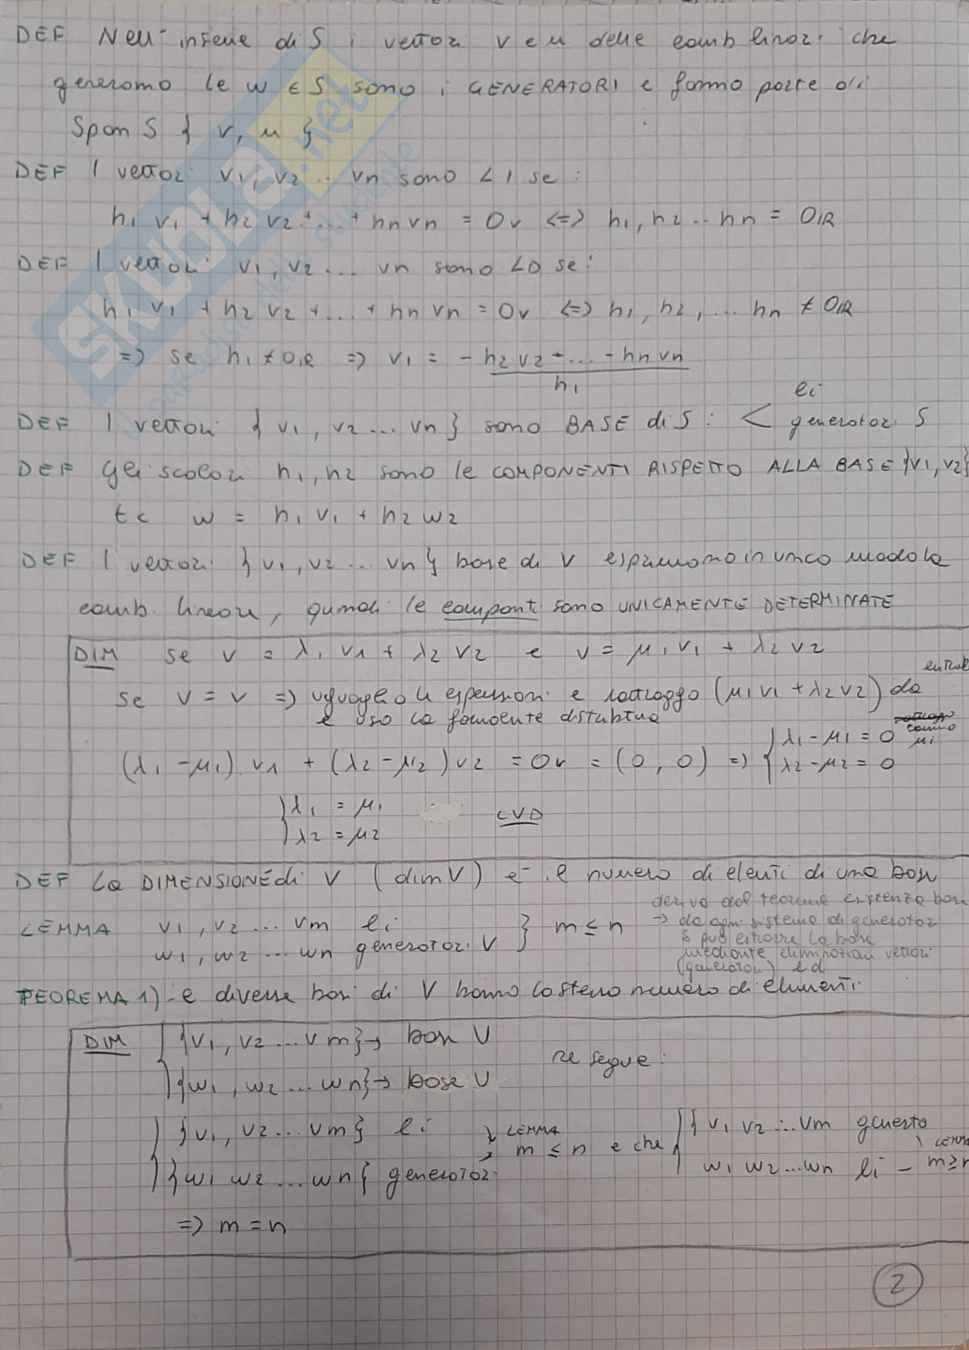 DEF Nell'insieme di S i vettori v e u delle comb linari che
generamo le w ∈ S sono i GENERATORI e fanno parte di
Span S { v, u }
DEF I vettori v1, v2 .. vn sono LI se:
h1 v1 + h2 v2 + ... + hn vn = 0v <=> h1, h2 .. hn = 0IR
DEF I vettori v1, v2 ... vn sono LD se:
h1 v1 + h2 v2 + ... + hn vn = 0v <=> h1, h2, ... hn ≠ 0IR
=> se h1 ≠ 0IR => v1 = - h2 v2 - ... - hn vn
h1
li
DEF I vettori { v1, v2 ... vn } sono BASE di S : < generatori S
DEF gli scalari h1, h2 sono le COMPONENTI RISPETTO ALLA BASE {v1, v2}
tc w = h1 v1 + h2 w2
DEF I vettori {v1, v2 .. vn} base di V esprimono in unico modo la
comb. lineare, quindi le compont sono UNICAMENTE DETERMINATE
DIM se v = λ1 v1 + λ2 v2 e v = μ1 v1 + λ2 v2
se v = v => uguaglio le espressioni e sottraggo (μ1 v1 + λ2 v2) da
e uso la distubtiva
(λ1 - μ1) v1 + (λ2 - μ2) v2 = 0v = (0, 0) => { λ1 - μ1 = 0
λ2 - μ2 = 0
{ λ1 = μ1
λ2 = μ2
CVD
DEF La DIMENSIONE di V (dim V) è il numero di elenti di una base
deriva dal teorema esistenza base
LEMMA v1, v2 ... vm li } m ≤ n
w1, w2 ... wn generatori V
→ da ogni sistema di generatori
si può estrarre la base
mediante eliminazioni vettori
(generatori) ld
TEOREMA 1) - e diverse basi di V hanno lo stesso numero di elementi
DIM { {v1, v2 ... vm} → base V
{w1, w2 ... wn} → base V
ne segue:
{ {v1, v2 ... vm} li
{w1 w2 ... wn} generatori
LEMMA
m ≤ n e che { { v1 v2 ... vm
w1 w2 ... wn li - m ≥ n
=> m = n
2
SKUOLA.net